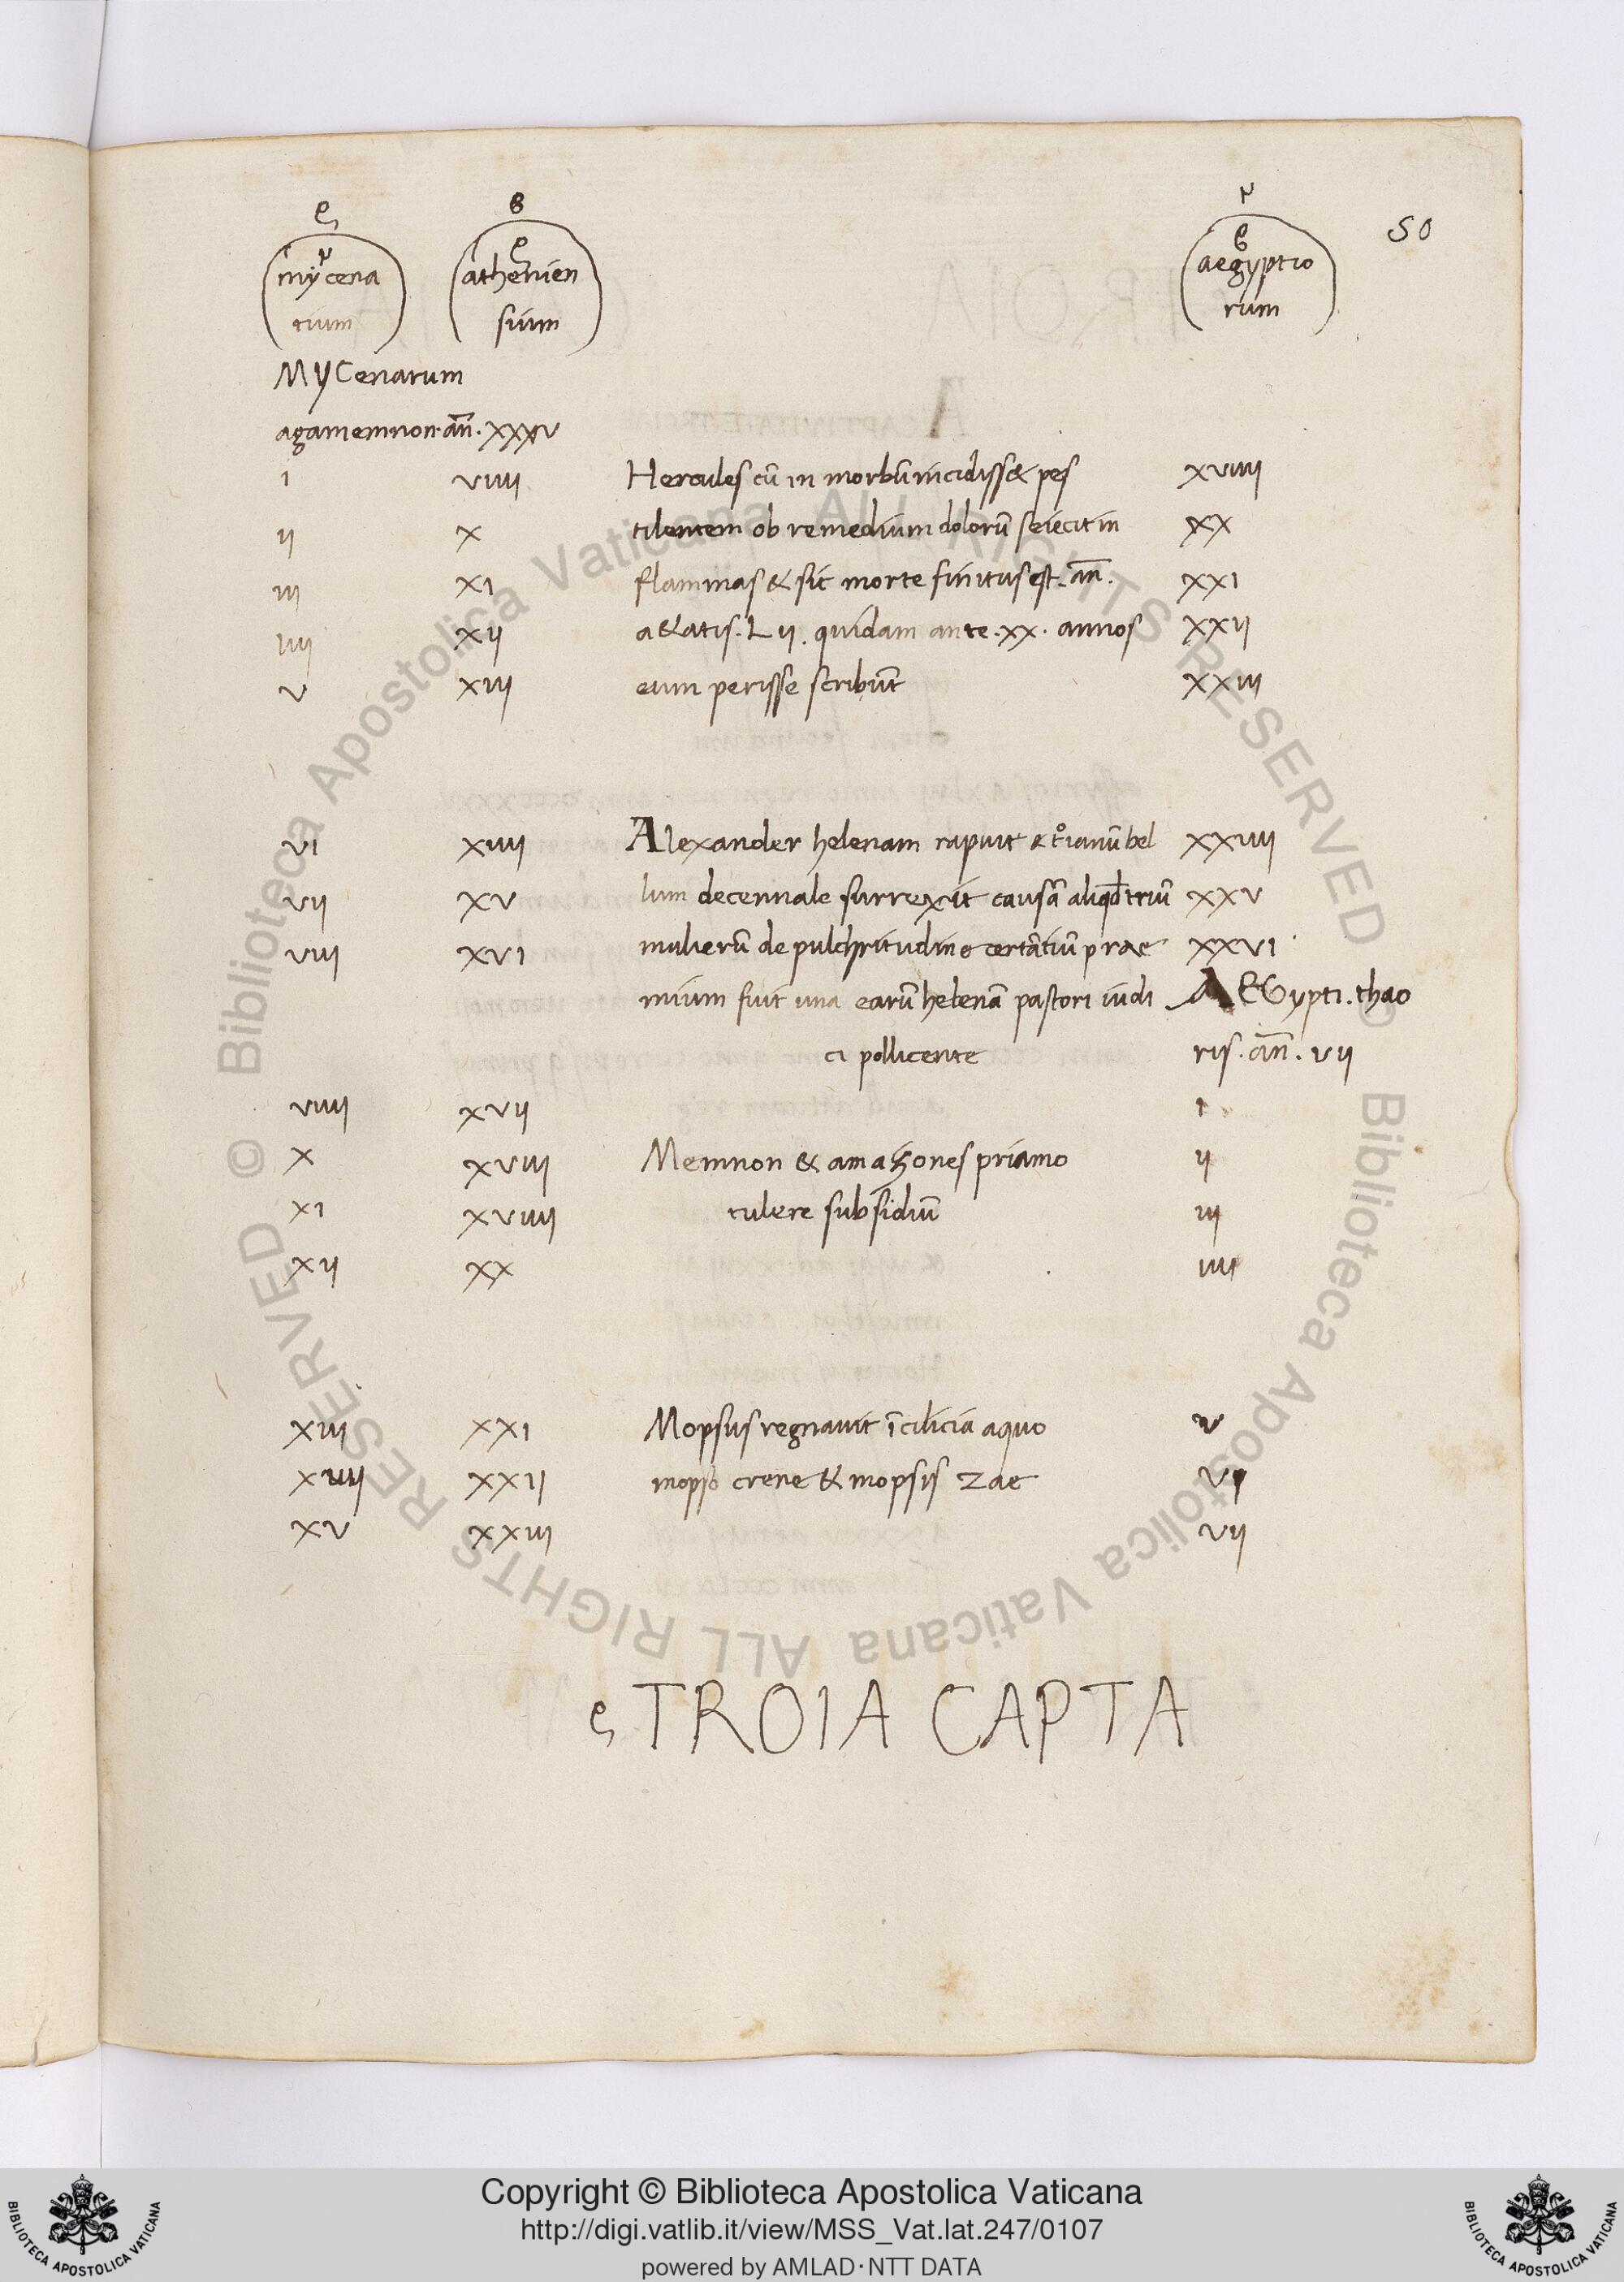 50
ę
ꝩ
mycena
tium
B
ę
athenien
sium
ꝩ
B
aegyptio
rum
MYCenarum
agamemnon·an̄·xxxv
i viiii Hercules cū in morbū incidiss& pes xviiii
ii x tilentem ob remedium dolorū se iecit in xx
iii xi flammas & sic morte finitus est. an̄. xxi
iiii xii a&atis. L ii. quidam ante. xx. annos xxii
v xiii eum perisse scribūt xxiii
vi xiiii Alexander helenam rapuit & troianū bel xxiiii
vii xv lum decennale surrexit causā aliqđ triū xxv
viii xvi mulierū de pulchritudine certātiū prae xxvi
mium fuit una earū helenā pastori iudi AEGypti. thao
ci pollicente ris. an̄. vii
viiii xvii i
x xviii Memnon & amazones priamo ii
xi xviiii tulere subsidiū iii
xii xx iiii
xiii xxi Mopsus regnauit ī cilicia a quo v
xiiii xxii mopso crene & mopsis zae vi
xv xxiii vii
ę TROIA CAPTA
© Biblioteca Apostolica Vaticana ALL RIGHTS RESERVED
© Biblioteca Apostolica Vaticana ALL RIGHTS RESERVED
BIBLIOTECA APOSTOLICA VATICANA
Copyright © Biblioteca Apostolica Vaticana
http://digi.vatlib.it/view/MSS_Vat.lat.247/0107
powered by AMLAD·NTT DATA
BIBLIOTECA APOSTOLICA VATICANA